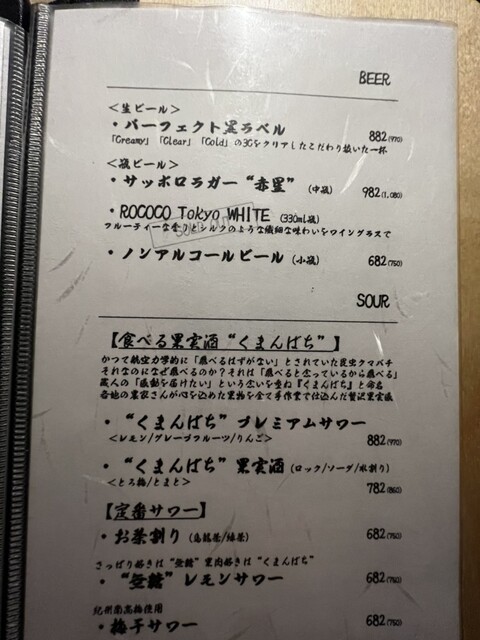 BEER
＜生ビール＞
・パーフェクト黒ラベル
882(970)
「Creamy」「Clear」「Cold」の3Cをクリアしたこだわり抜いた一杯
＜瓶ビール＞
・サッポロラガー“赤星”（中瓶）
982(1,080)
・ROCOCO Tokyo WHITE（330ml瓶）
フルーティーな香りとシルクのような繊細な味わいをワイングラスで
SOLD OUT
・ノンアルコールビール（小瓶）
682(750)
SOUR
【食べる果実酒“くまんばち”】
かつて航空力学的に「飛べるはずがない」とされていた昆虫クマバチ
それなのになぜ飛べるのか？それは「飛べると信っているから飛べる」
蔵人の「感動を届けたい」という念いを重ね『くまんばち』と命名
各地の農家さんが心を込めた果物を全て手作業で仕込んだ贅沢果実酒
・“くまんばち”プレミアムサワー
＜レモン/グレープフルーツ/りんご＞
882(970)
・“くまんばち”果実酒（ロック/ソーダ/水割り）
＜とろ梅/とまと＞
782(860)
【定番サワー】
・お茶割り（烏龍茶/緑茶）
682(750)
さっぱり好きは“無糖”果肉好きは“くまんばち”
・“無糖”レモンサワー
682(750)
紀州南高梅使用
・梅干サワー
682(750)